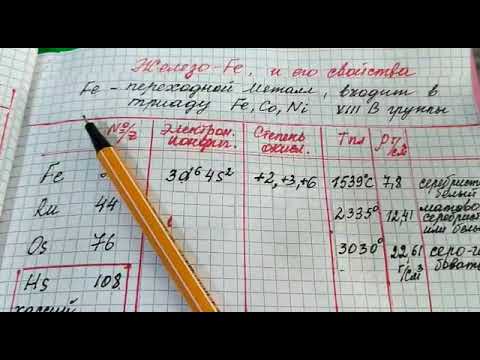 Железо-Fe, и его свойства
Fe - переходной металл, входит в
триаду Fe, Co, Ni VIII B группы
№ э/э Электрон. конфиг. Степень окисл. Tпл ρ г/см
Fe 3d⁶4s² +2,+3,+6 1539°C 7,8 серебрист белый
Ru 44 2335° 12,41 матово серебрист или бел
Os 76 3030° 22,61 г/см³ серо-г
Hs 108